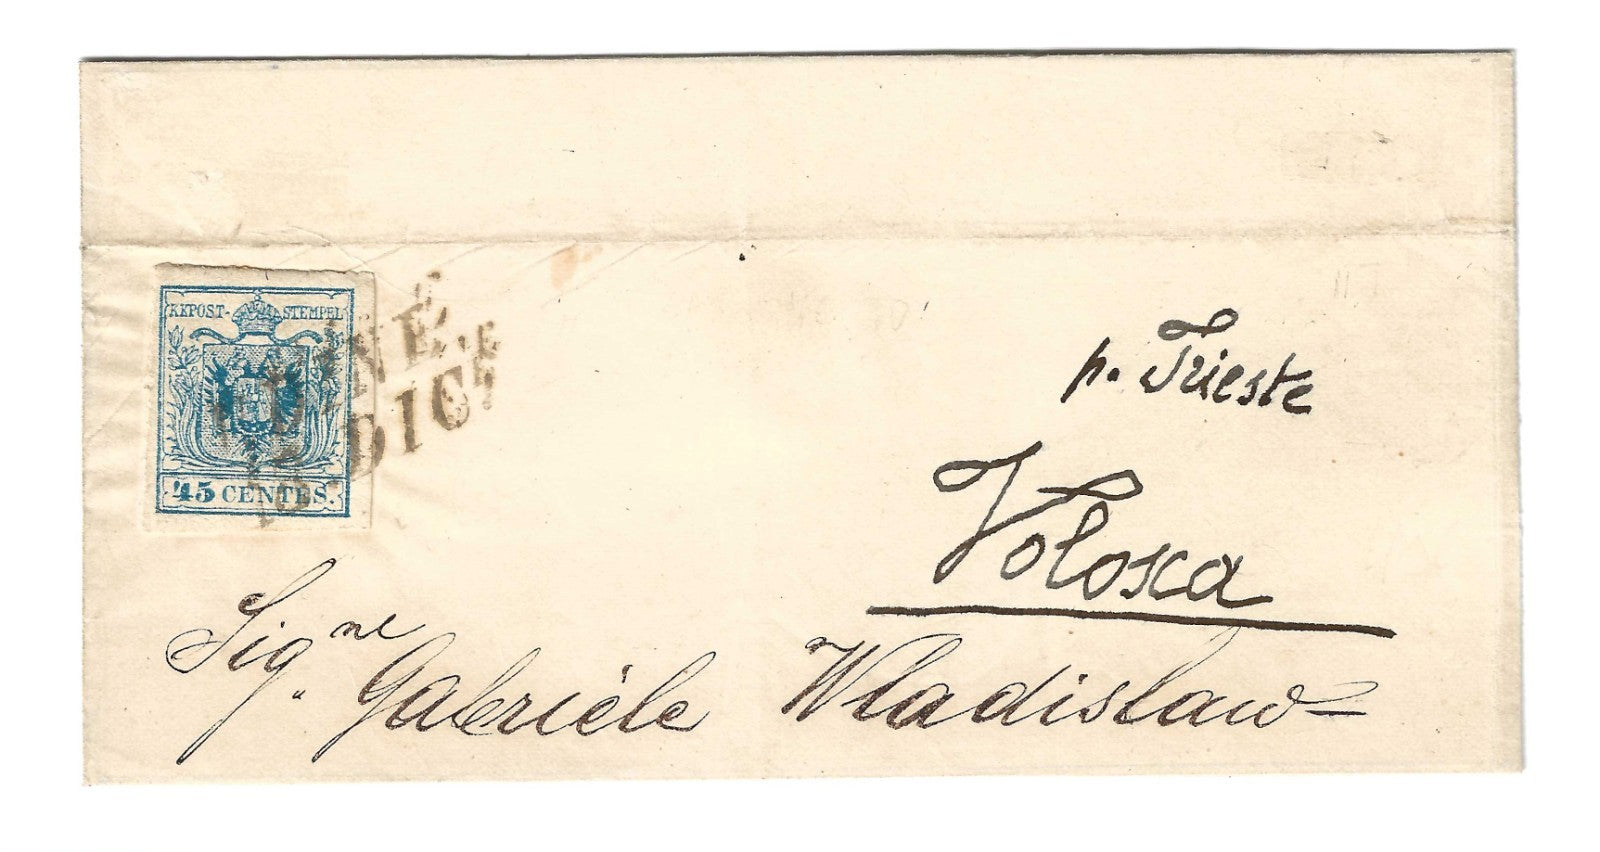 KKPOST-STEMPEL
45 CENTES.
UDINE
DIC.E
p. Trieste
Volosca
Sig.ne Gabriéle Wladislaw